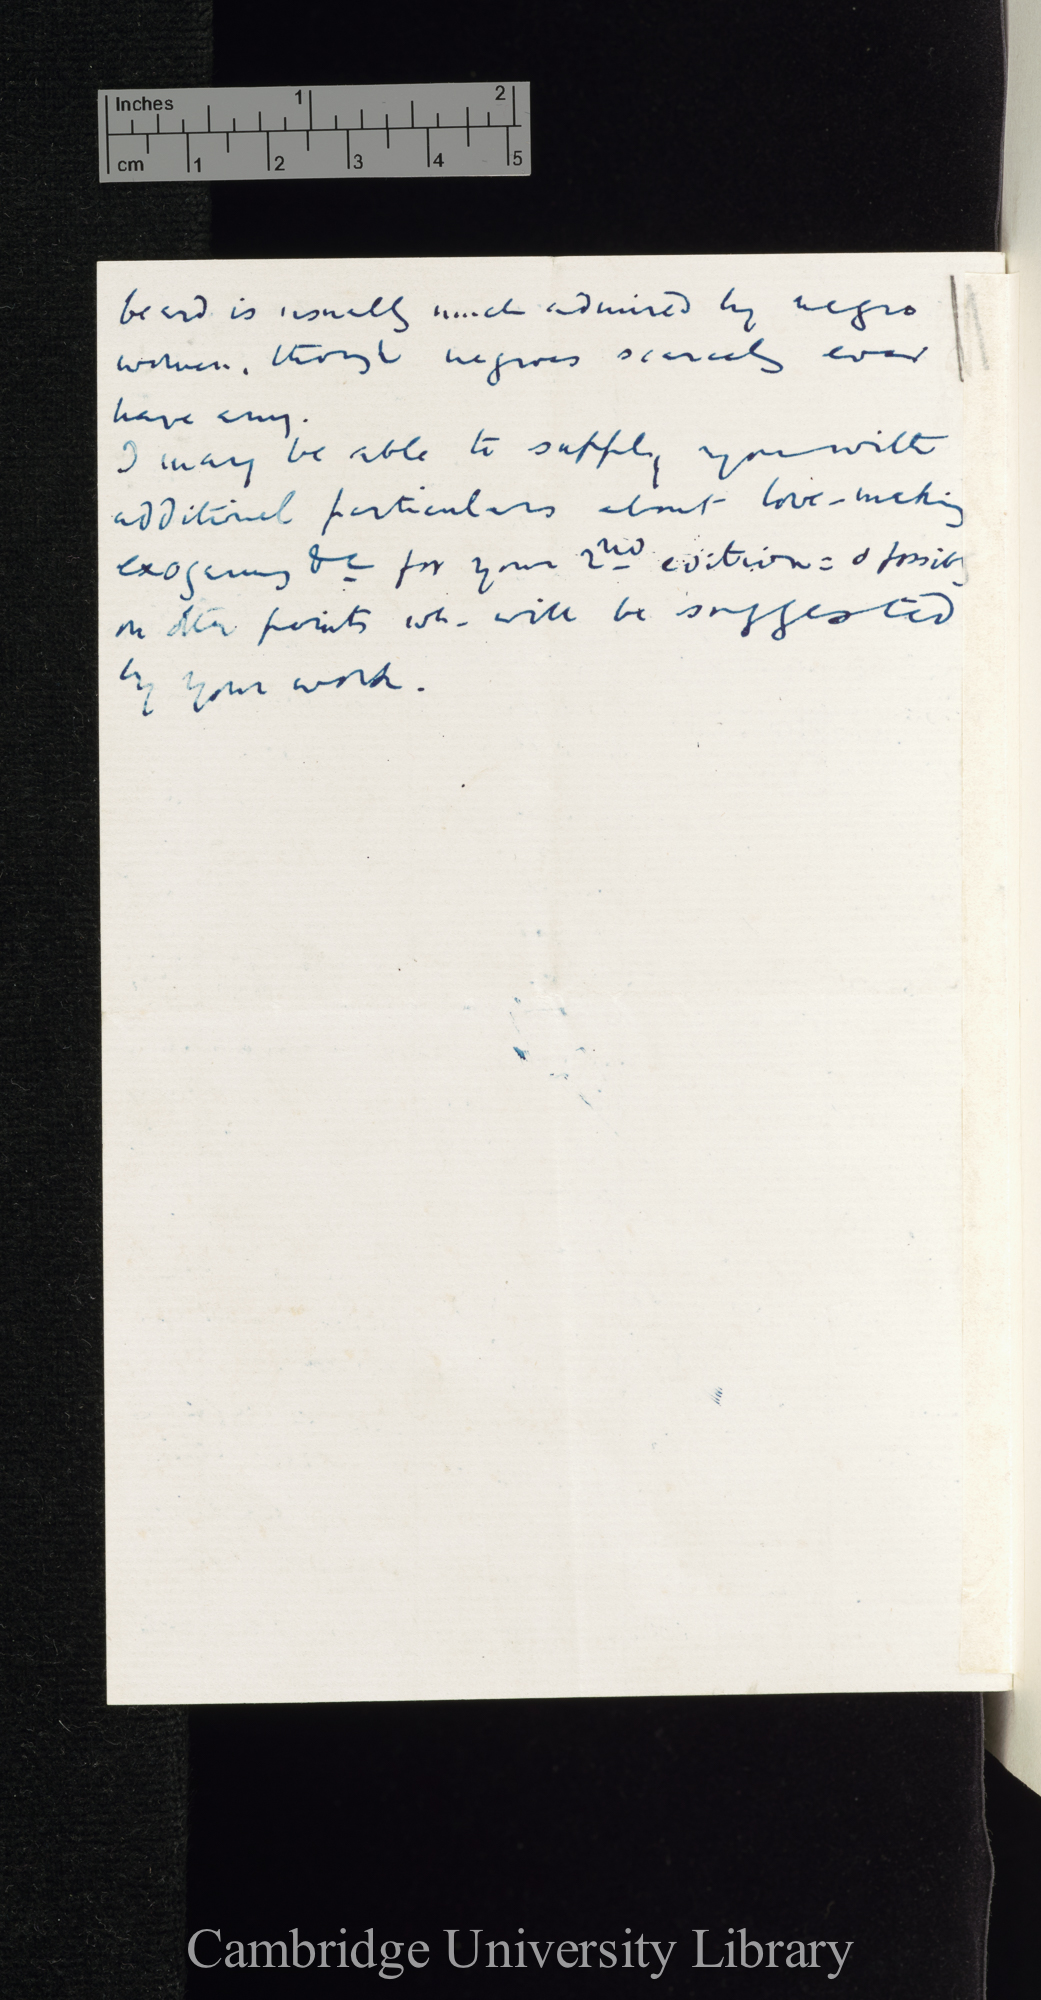 Inches 1 2
cm 1 2 3 4 5
beard is usually much admired by negro
women, though negroes scarcely ever
have any.
I may be able to supply you with
additional particulars about love-making
exogamy &c for your 2nd edition = & possibly
on other points wh. will be suggested
by your work.
Cambridge University Library